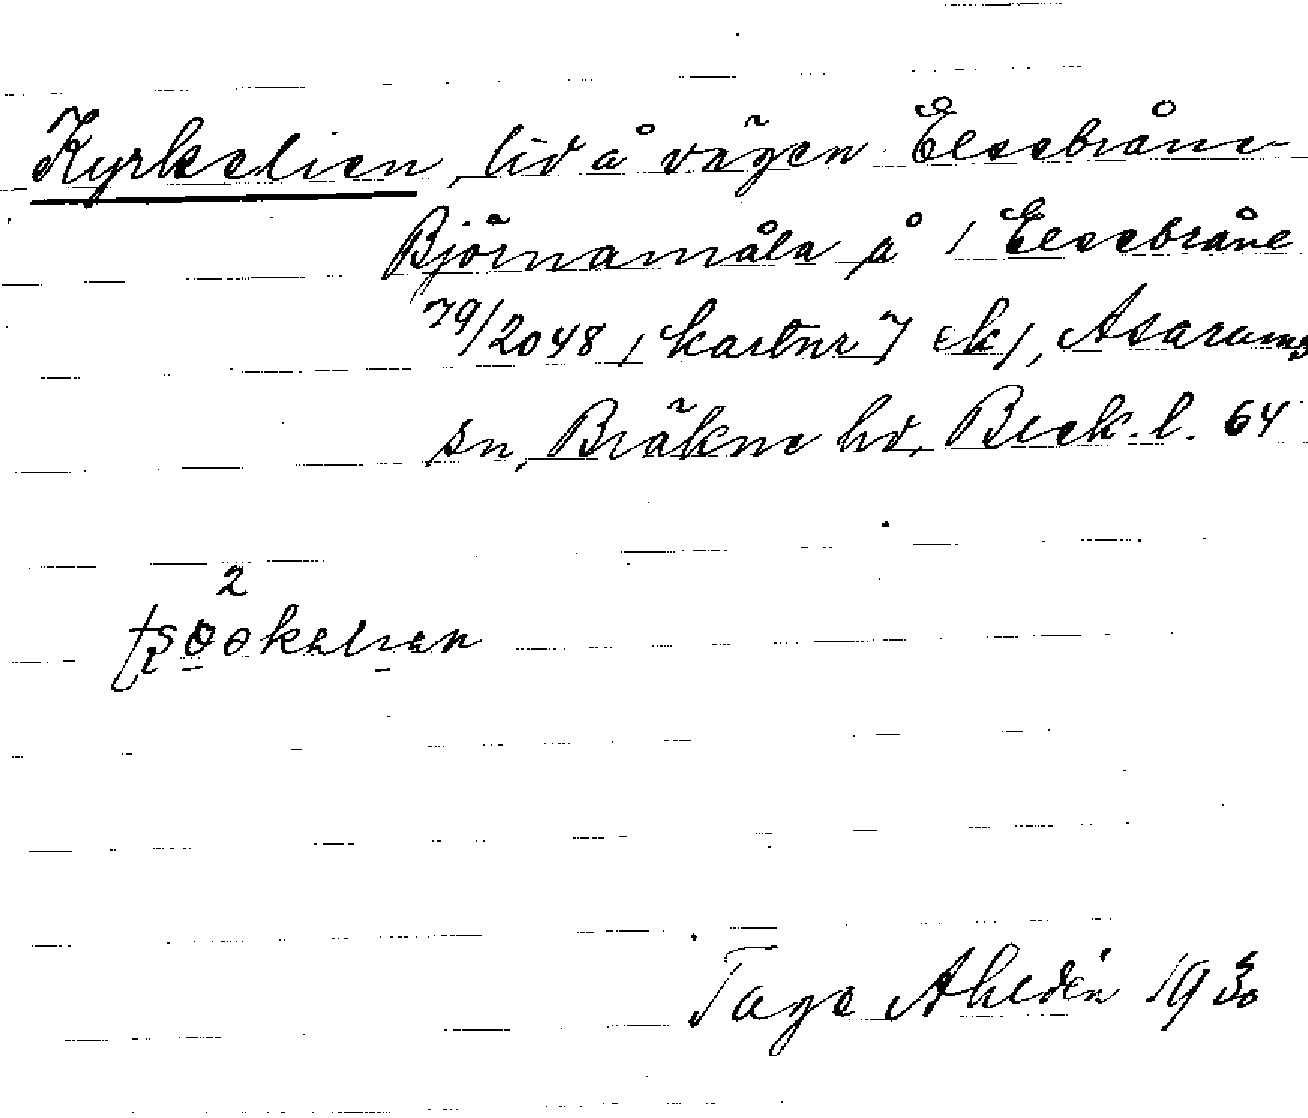 Kyrkelien, lid å vägen Elsebråne-
Björnamåla på / Elsebråne
79/2048 / kartnr 7 ek/, Asarums
sn, Bräkne hd, Blek. l. 64
2
Tage Ahldén 1930